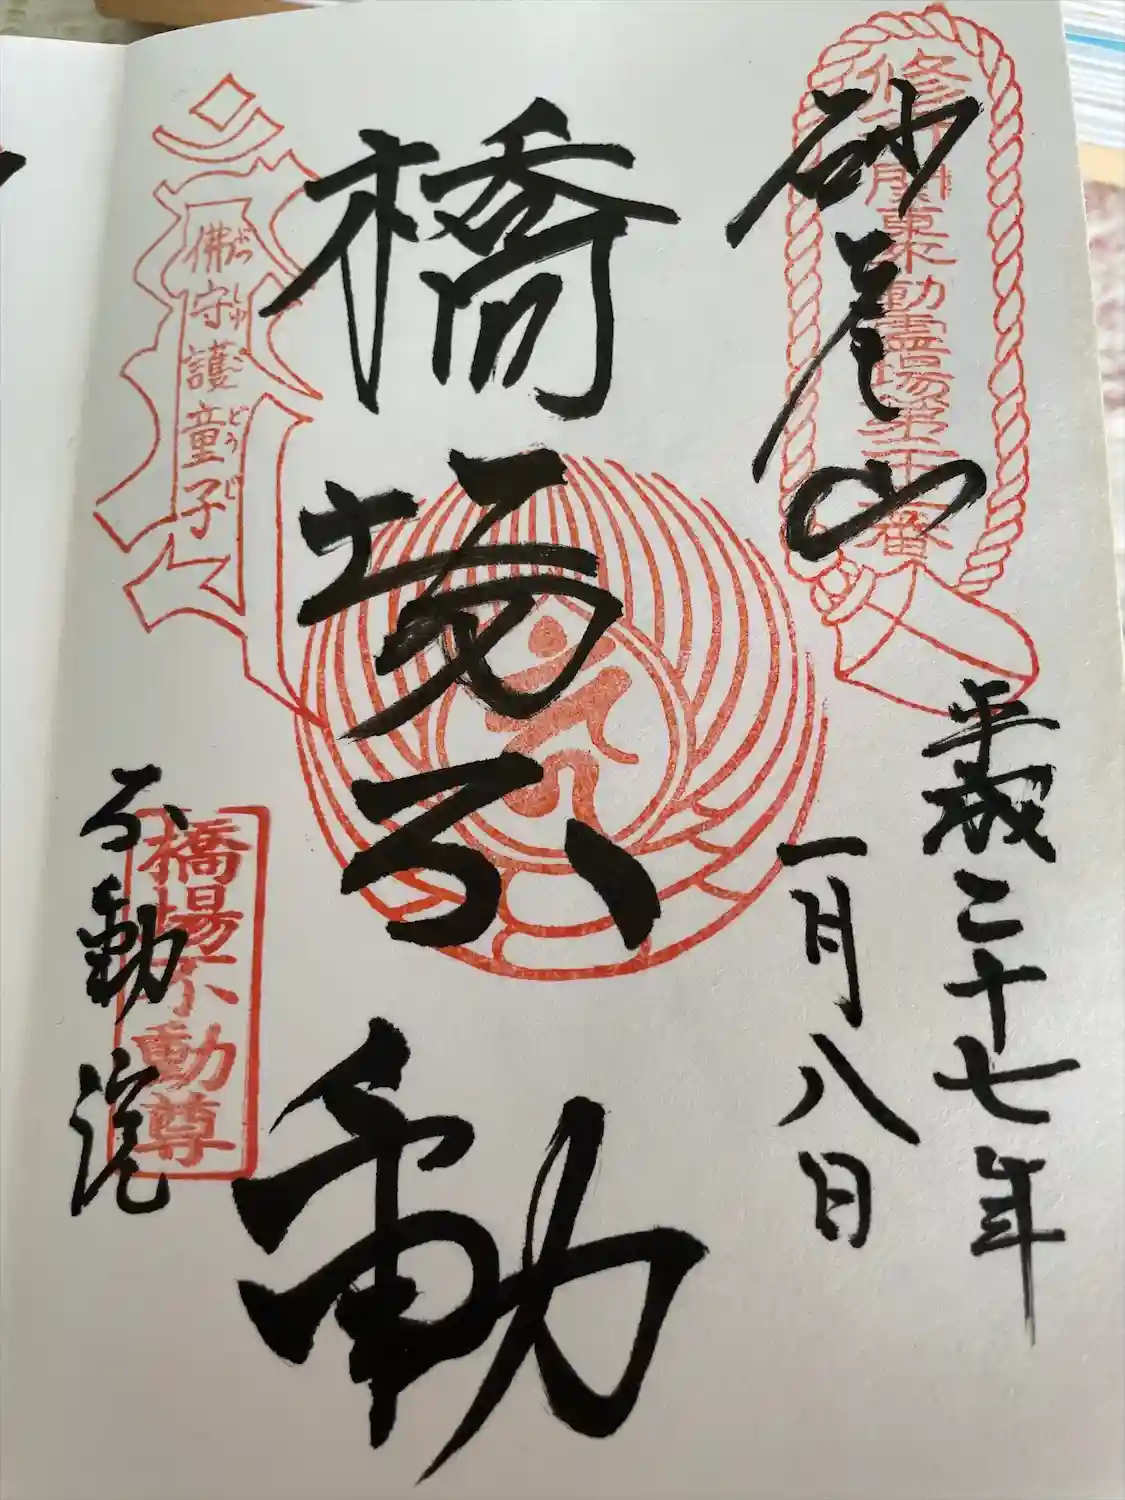 砂尾山
橋場不動
平成二十七年
一月八日
不動院
佛守護童子
ぶつしゅごどうじ
橋場不動尊
関東不動霊場第二十三番